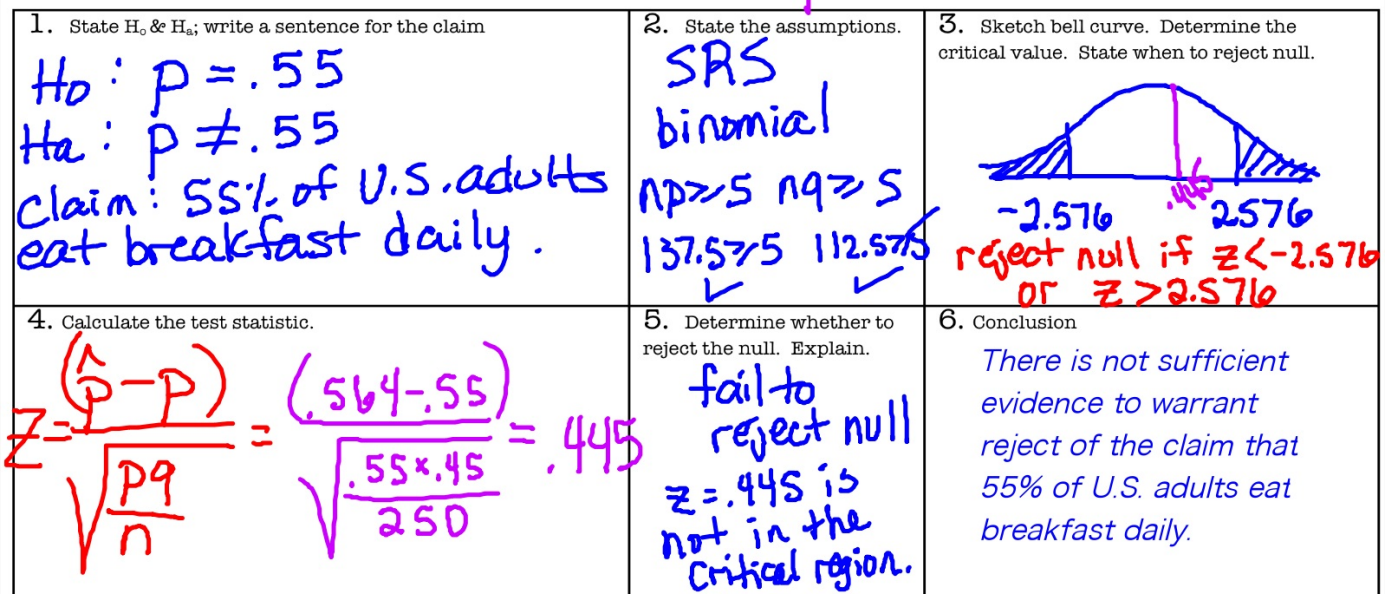 1. State H₀ & Hₐ; write a sentence for the claim
Ho : p = .55
Ha : p ≠ .55
claim : 55% of U.S. adults
eat breakfast daily.
2. State the assumptions.
SRS
binomial
np ≥ 5 nq ≥ 5
137.5 ≥ 5 112.5 ≥ 5
✓ ✓
3. Sketch bell curve. Determine the
critical value. State when to reject null.
.445
-2.576 2.576
reject null if z < -2.576
or z > 2.576
4. Calculate the test statistic.
z = (p̂ - p) / √(pq / n) = (.564 - .55) / √(.55 × .45 / 250) = .445
5. Determine whether to
reject the null. Explain.
fail to
reject null
z = .445 is
not in the
critical region.
6. Conclusion
There is not sufficient
evidence to warrant
reject of the claim that
55% of U.S. adults eat
breakfast daily.